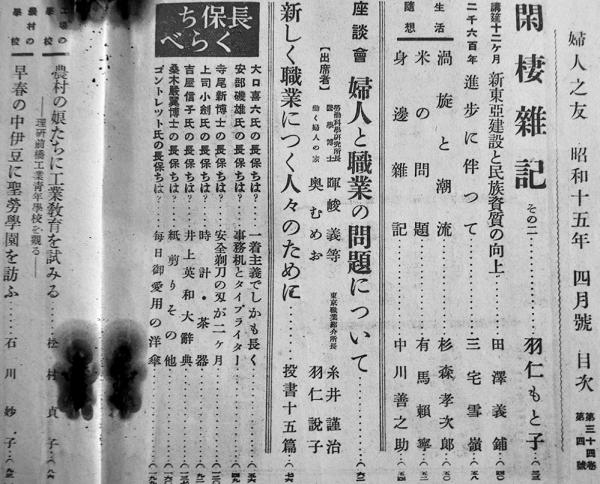 婦人之友 昭和十五年 四月號 目次
第三十四卷
第四號
閑棲雜記 その二 羽仁もと子
講筵十二ケ月 新東亞建設と民族資質の向上 田澤義鋪
二千六百年 進步に伴つて 三宅雪嶺
生活 渦旋と潮流 杉森孝次郎
米の問題 有馬賴寧
隨想 身邊雜記 中川善之助
座談會 婦人と職業の問題について
【出席者】
勞働科學硏究所長 醫學博士 暉峻義等
東京職業紹介所長 糸井謹治
働く婦人の家 奥むめお
羽仁說子
新しく職業につく人々のために 投書十五篇
長保ちくらべ
大口喜六氏の長保ちは? 一着主義でしかも長く
安部磯雄氏の長保ちは? 事務机とタイプライター
寺尾新博士の長保ちは? 安全剃刀の刃が二ケ月
上司小劍氏の長保ちは? 時計・茶器
吉屋信子氏の長保ちは? 井上英和大辭典
桑木嚴翼博士の長保ちは? 紙剪りその他
ゴントレット氏の長保ちは? 每日御愛用の洋傘
工場の學校 農村の娘たちに工業教育を試みる 松村貞子
──理硏前橋工業靑年學校を觀る──
農村の學校 早春の中伊豆に聖勞學園を訪ふ 石川妙子